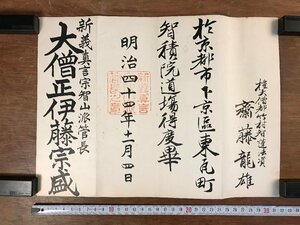 齋藤龍雄
於京都市下京區東瓦町
智積院道場得度畢
明治四十四年十一月四日
新義真言宗智山派管長
大僧正伊藤宗盛